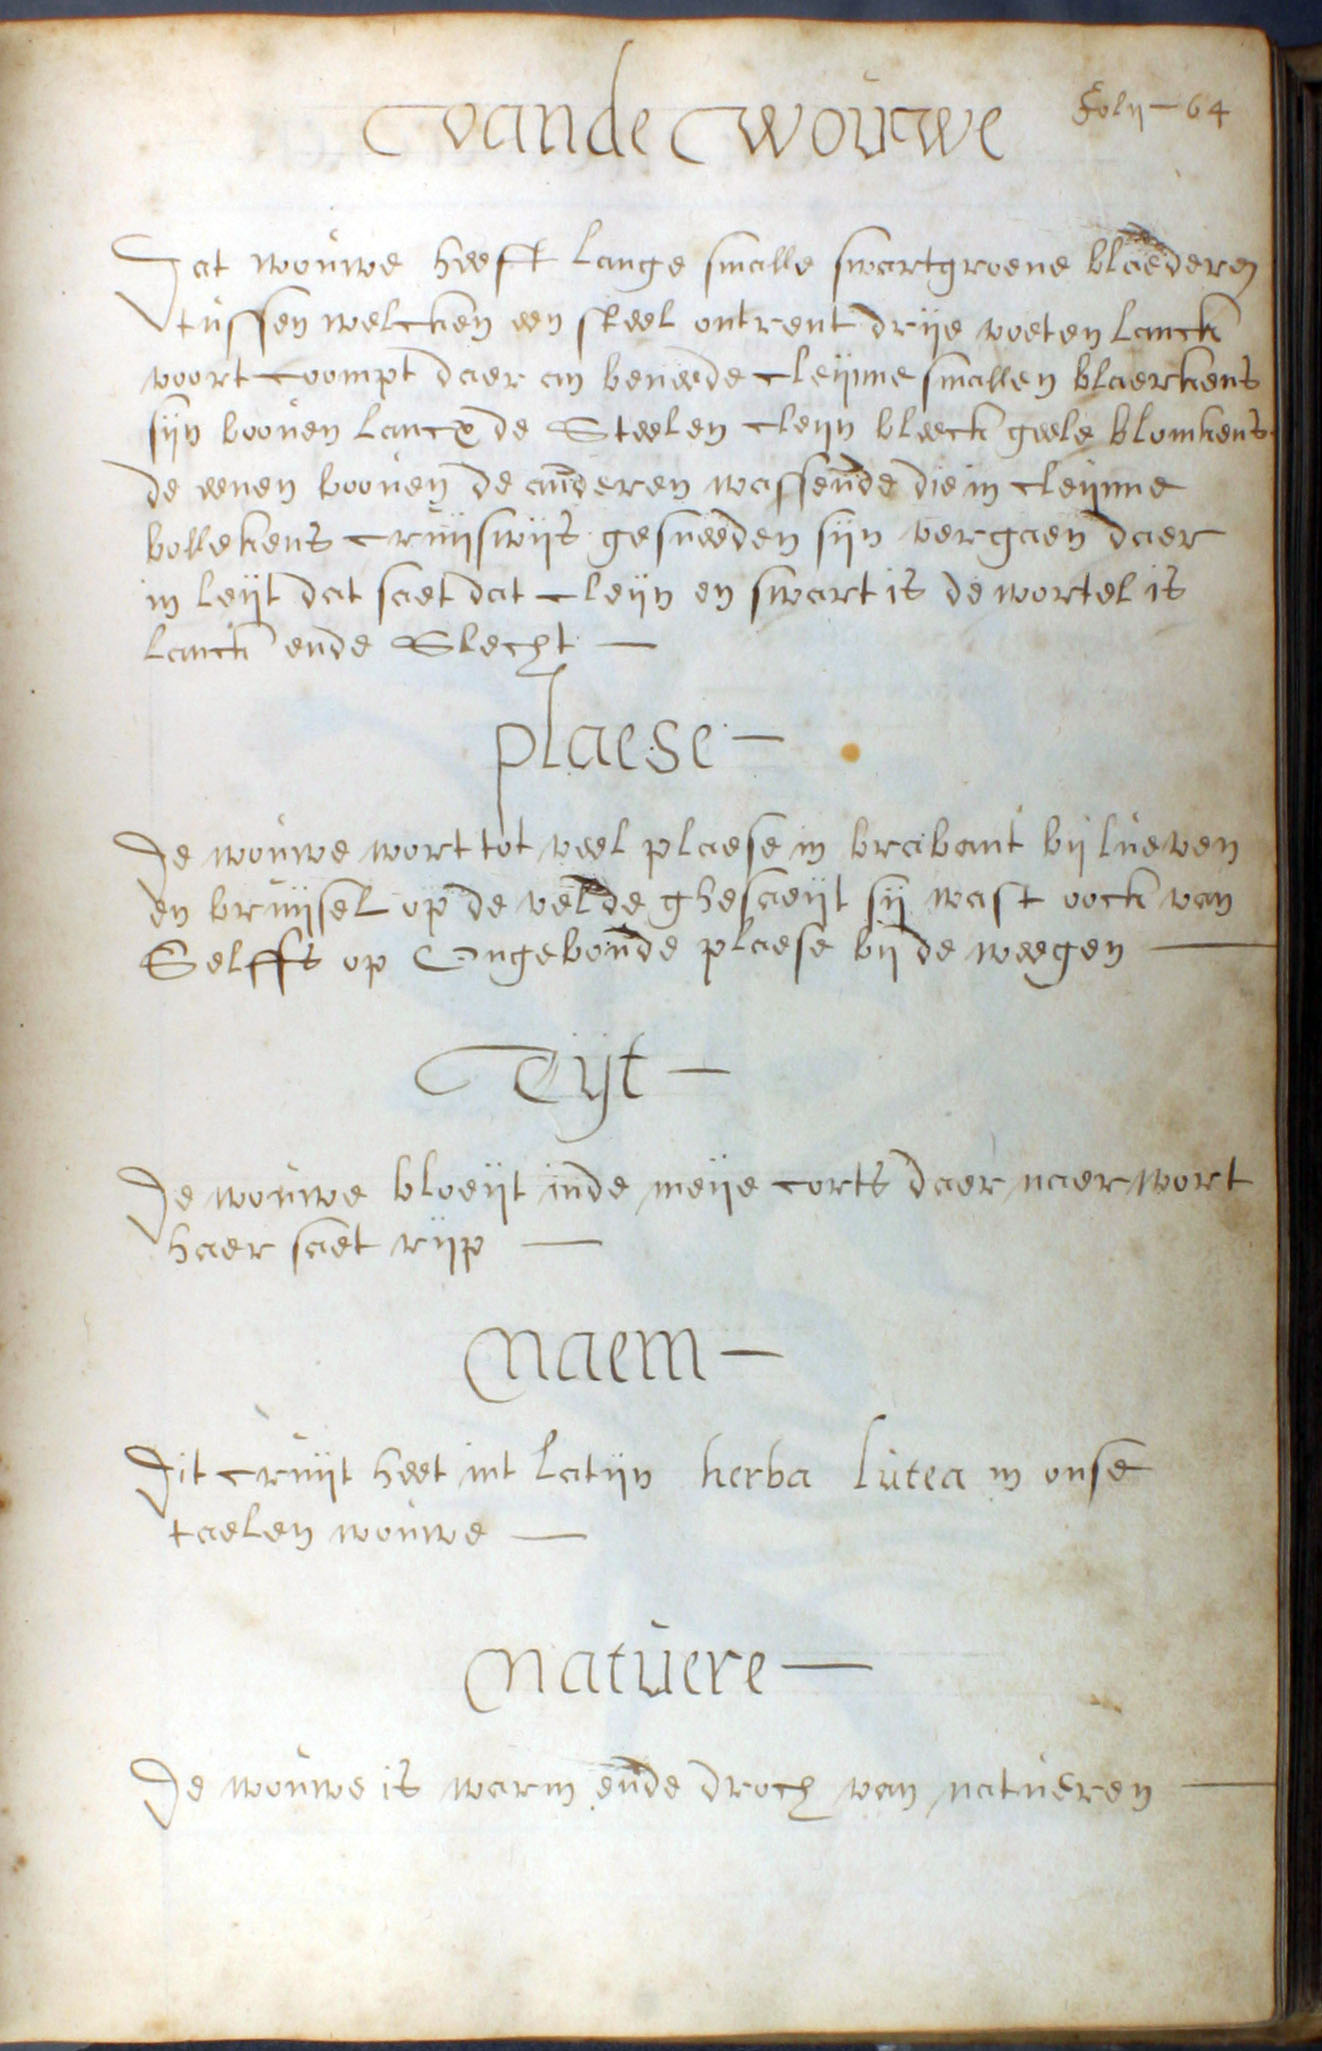 Foly - 64
Vande Wouwe
Dat wouwe heeft lange smalle swartgroene blaederen
tussen welcken een steel ontrent drije voeten lanck
voort coompt daer an beneede cleijnne smallen blaerkens
sijn booven lancx de Steelen cleijn bleeck geele blomkens
de eenen booven de anderen wassende die in cleijnne
bollekens cruijswijs gesneeden sijn vergaen daer
in leijt dat saet dat cleijn en swart is de wortel is
lanck ende Slecht —
plaese —
De wouwe wort tot veel plaese in brabant bij lueven
en bruijsel op de velde ghesaeijt sij wast oock van
Selffs op Ongeboude plaese bij de weegen —
Tijt —
De wouwe bloeijt inde meije corts daer naer wort
haer saet rijp —
Naem —
Dit cruijt heet int latijn herba lutea in onse
taelen wouwe —
Natuere —
De wouwe is warm ende droch van natueren —